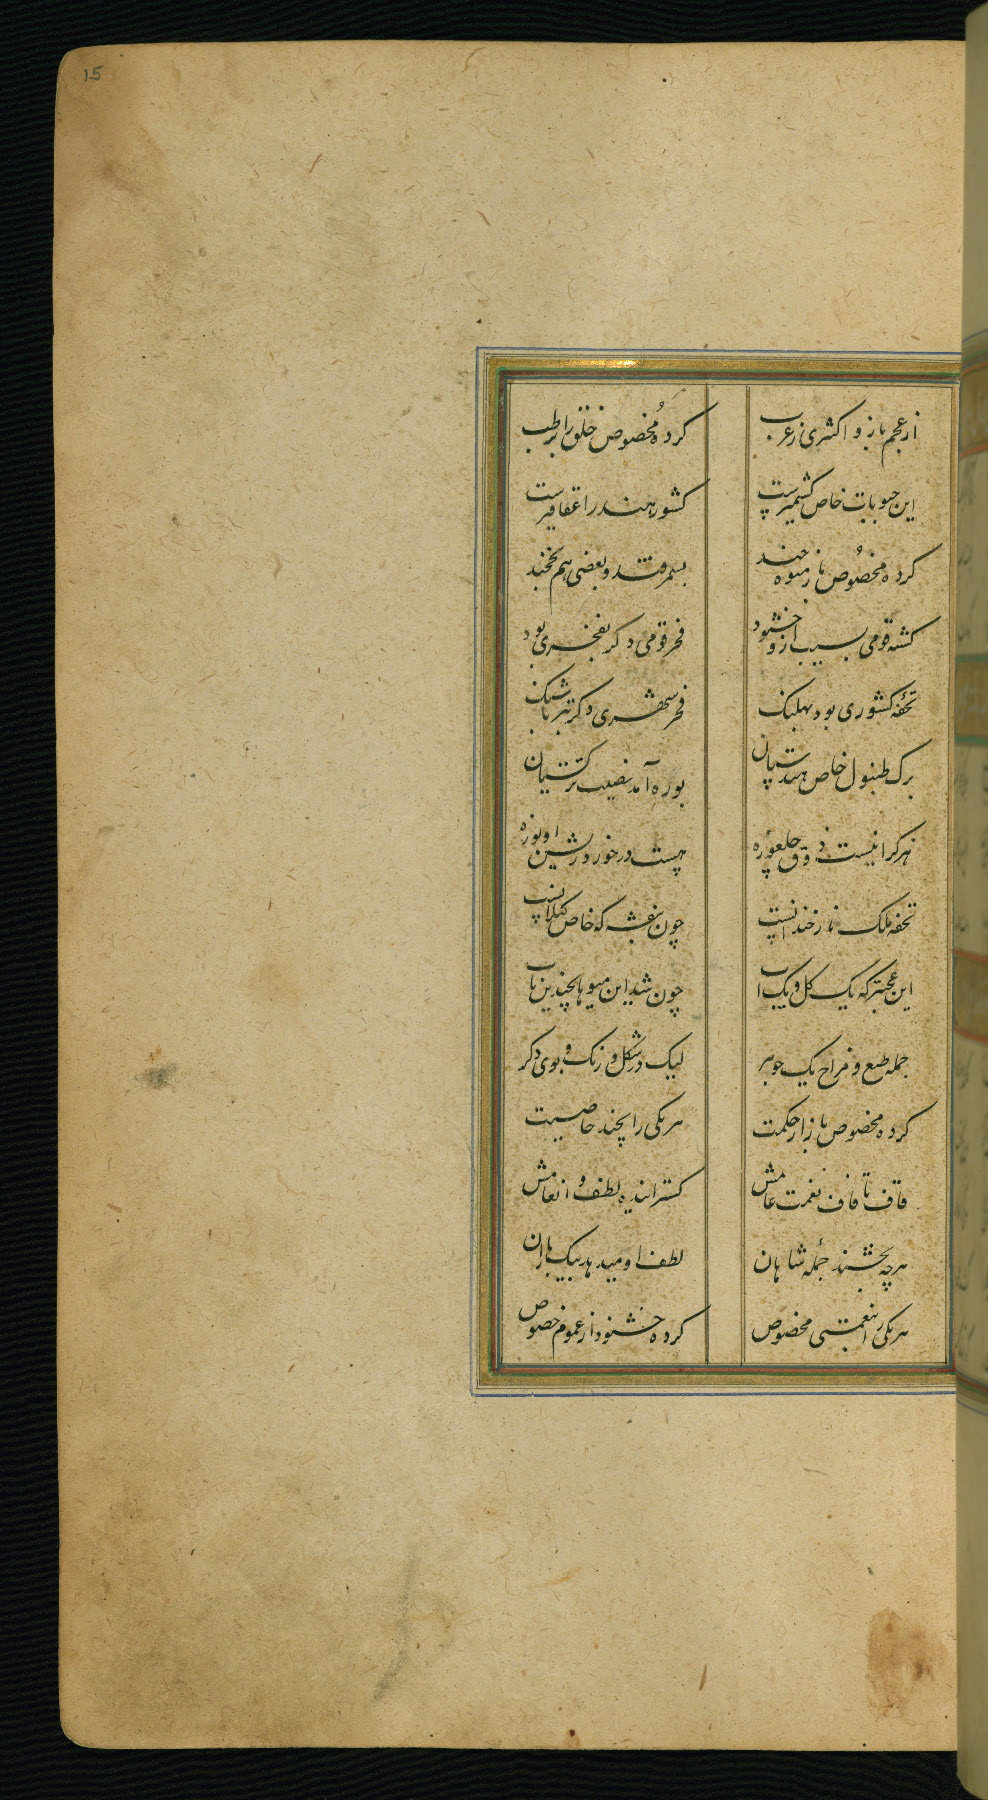 15
از عجم باز و اکثری ز عرب کرده مخصوص خلق را بر طب
این حبوبات خاص کشمیرست کشور هند را عقاقیرست
کرده مخصوص باز میوه چند بسمرقند و بعضی هم بخجند
کشته قومی بسیب ازو خشنود فخر قومی دکر بفخری بود
تحفه کشوری بود بهلنک فخر شهری دکر
برک طنبول خاص هندستیان بوره آمد نصیب ترکستیان
هر کرا نیست ذوق جلغوزه هست در خورد ریشش او بوزه
تحفه ملک چون بنفشه که خاص کیلانست
این عجبتر که یک کل و یک آب چون شد این میوها بچندین باب
جمله طبع و مزاج یک جوهر لیک در شکل و رنک و بوی دکر
کرده مخصوص باز از حکمت هر یکی را بچند خاصیت
قاف تا قاف نعمت عامش کستراننده لطف و انعامش
هرچه بخشند جمله شاهان لطف او میدهد بیک باران
هر یکی را بنعمتی مخصوص کرده خشنود از عموم خصوص